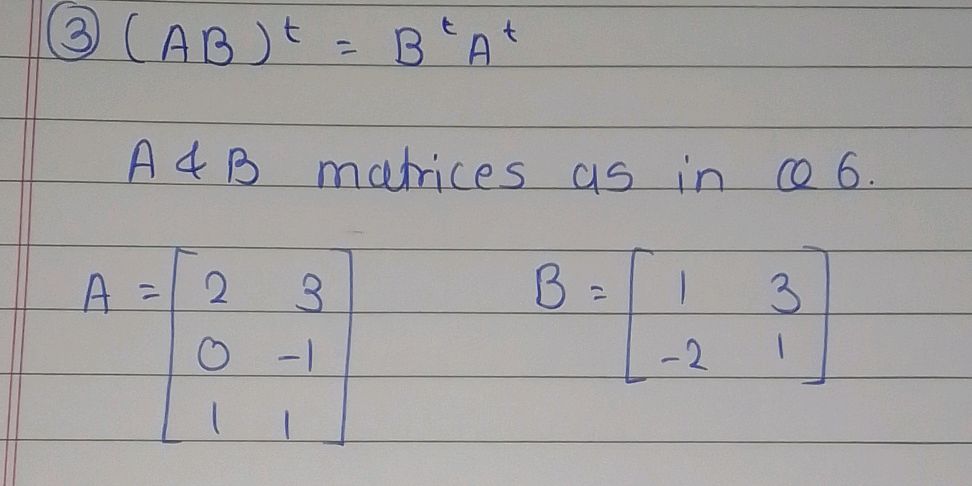 ③ (AB)ᵗ = BᵗAᵗ
A & B matrices as in Q 6.
A = [ 2 3      B = [ 1 3
0 -1      -2 1 ]
1 1 ]